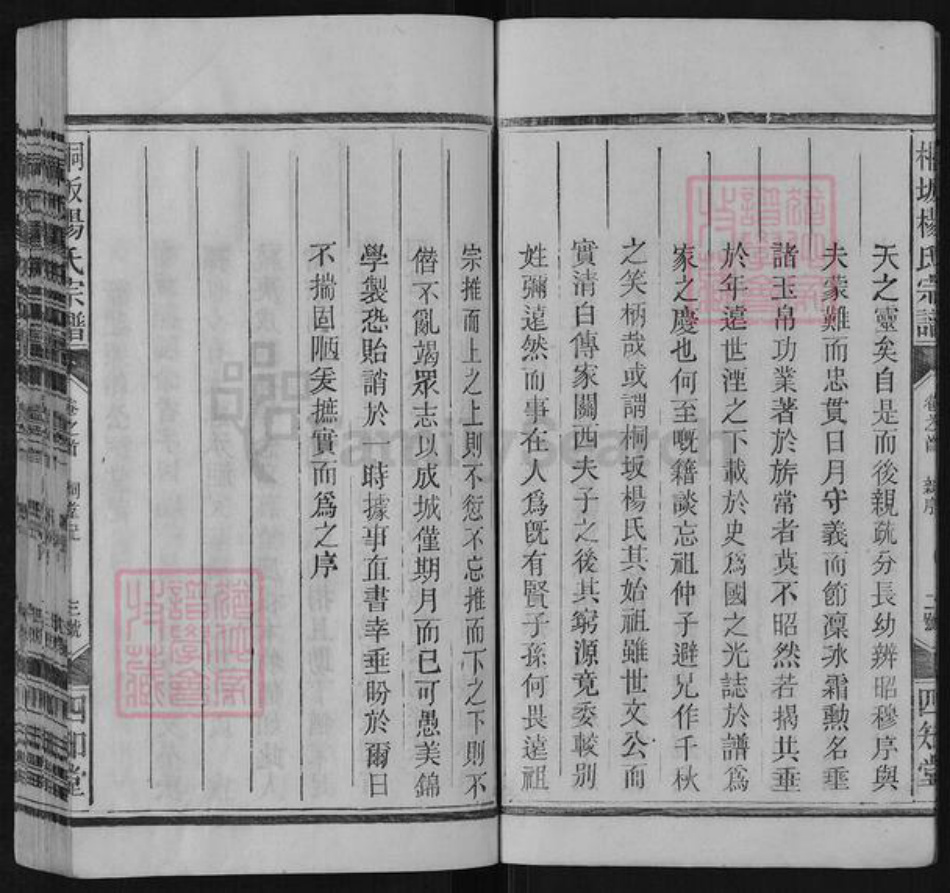 桐坂楊氏宗譜
卷之首
四知堂
天之靈矣自是而後親疏分長幼辨昭穆序與
夫蒙難而忠貫日月守義而節凜氷霜勲名垂
諸玉帛功業著於旂常者莫不昭然若揭共垂
於年遠世湮之下載於史爲國之光誌於譜爲
家之慶也何至嘅籍談忘祖仲子避兄作千秋
之笑柄哉或謂桐坂楊氏其始祖雖世文公而
實清白傳家關西夫子之後其窮源竟委較別
姓彌遠然而事在人爲旣有賢子孫何畏遠祖
宗推而上之上則不愆不忘推而下之下則不
僭不亂竭眾志以成城僅期月而已可愚美錦
學製恐貽誚於一時據事直書幸垂盼於爾日
不揣固陋爰摭實而爲之序
桐坂楊氏宗譜
卷之首
三號
四知堂
FamilySearch